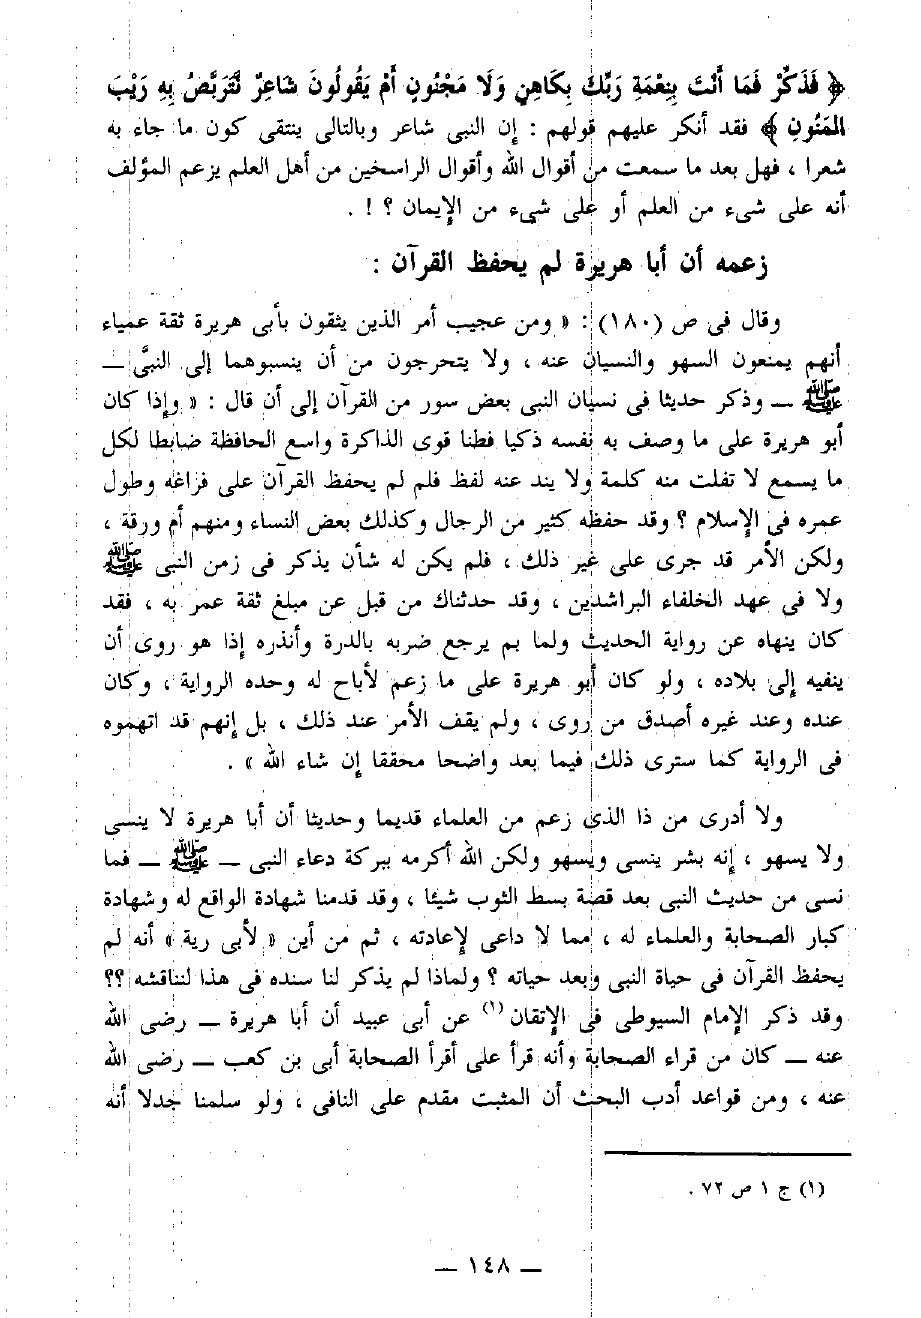 ﴿ فَذَكِّرْ فَمَا أَنْتَ بِنِعْمَةِ رَبِّكَ بِكَاهِنٍ وَلَا مَجْنُونٍ أَمْ يَقُولُونَ شَاعِرٌ نَتَرَبَّصُ بِهِ رَيْبَ
المَنُونِ ﴾ فقد أنكر عليهم قولهم : إن النبى شاعر وبالتالى ينتقى كون ما جاء به
شعرا ، فهل بعد ما سمعت من أقوال الله وأقوال الراسخين من أهل العلم يزعم المؤلف
أنه على شىء من العلم أو على شىء من الإيمان ؟ ! .
زعمه أن أبا هريرة لم يحفظ القرآن :
وقال فى ص (١٨٠) : « ومن عجيب أمر الذين يثقون بأبى هريرة ثقة عمياء
أنهم يمنعون السهو والنسيان عنه ، ولا يتحرجون من أن ينسبوهما إلى النبىّ ــ
ﷺ ــ وذكر حديثا فى نسيان النبى بعض سور من القرآن إلى أن قال : « وإذا كان
أبو هريرة على ما وصف به نفسه ذكيا فطنا قوى الذاكرة واسع الحافظة ضابطا لكل
ما يسمع لا تفلت منه كلمة ولا يند عنه لفظ فلم لم يحفظ القرآن على فراغه وطول
عمره فى الإسلام ؟ وقد حفظه كثير من الرجال وكذلك بعض النساء ومنهم أم ورقة ،
ولكن الأمر قد جرى على غير ذلك ، فلم يكن له شأن يذكر فى زمن النبى ﷺ
ولا فى عهد الخلفاء الراشدين ، وقد حدثناك من قبل عن مبلغ ثقة عمر به ، فقد
كان ينهاه عن رواية الحديث ولما بم يرجع ضربه بالدرة وأنذره إذا هو روى أن
ينفيه إلى بلاده ، ولو كان أبو هريرة على ما زعم لأباح له وحده الرواية ، وكان
عنده وعند غيره أصدق من روى ، ولم يقف الأمر عند ذلك ، بل إنهم قد اتهموه
فى الرواية كما سترى ذلك فيما بعد واضحا محققا إن شاء الله » .
ولا أدرى من ذا الذى زعم من العلماء قديما وحديثا أن أبا هريرة لا ينسى
ولا يسهو ، إنه بشر ينسى ويسهو ولكن الله أكرمه ببركة دعاء النبى ــ ﷺ ــ فما
نسى من حديث النبى بعد قصة بسط الثوب شيئا ، وقد قدمنا شهادة الواقع له وشهادة
كبار الصحابة والعلماء له ، مما لا داعى لإعادته ، ثم من أين « لأبى رية » أنه لم
يحفظ القرآن فى حياة النبى وبعد حياته ؟ ولماذا لم يذكر لنا سنده فى هذا لنناقشه ؟؟
وقد ذكر الإمام السيوطى فى الإتقان (١) عن أبى عبيد أن أبا هريرة ــ رضى الله
عنه ــ كان من قراء الصحابة وأنه قرأ على أقرأ الصحابة أبى بن كعب ــ رضى الله
عنه ، ومن قواعد أدب البحث أن المثبت مقدم على النافى ، ولو سلمنا جدلا أنه
(١) ج ١ ص ٧٢ .
ــ ١٤٨ ــ